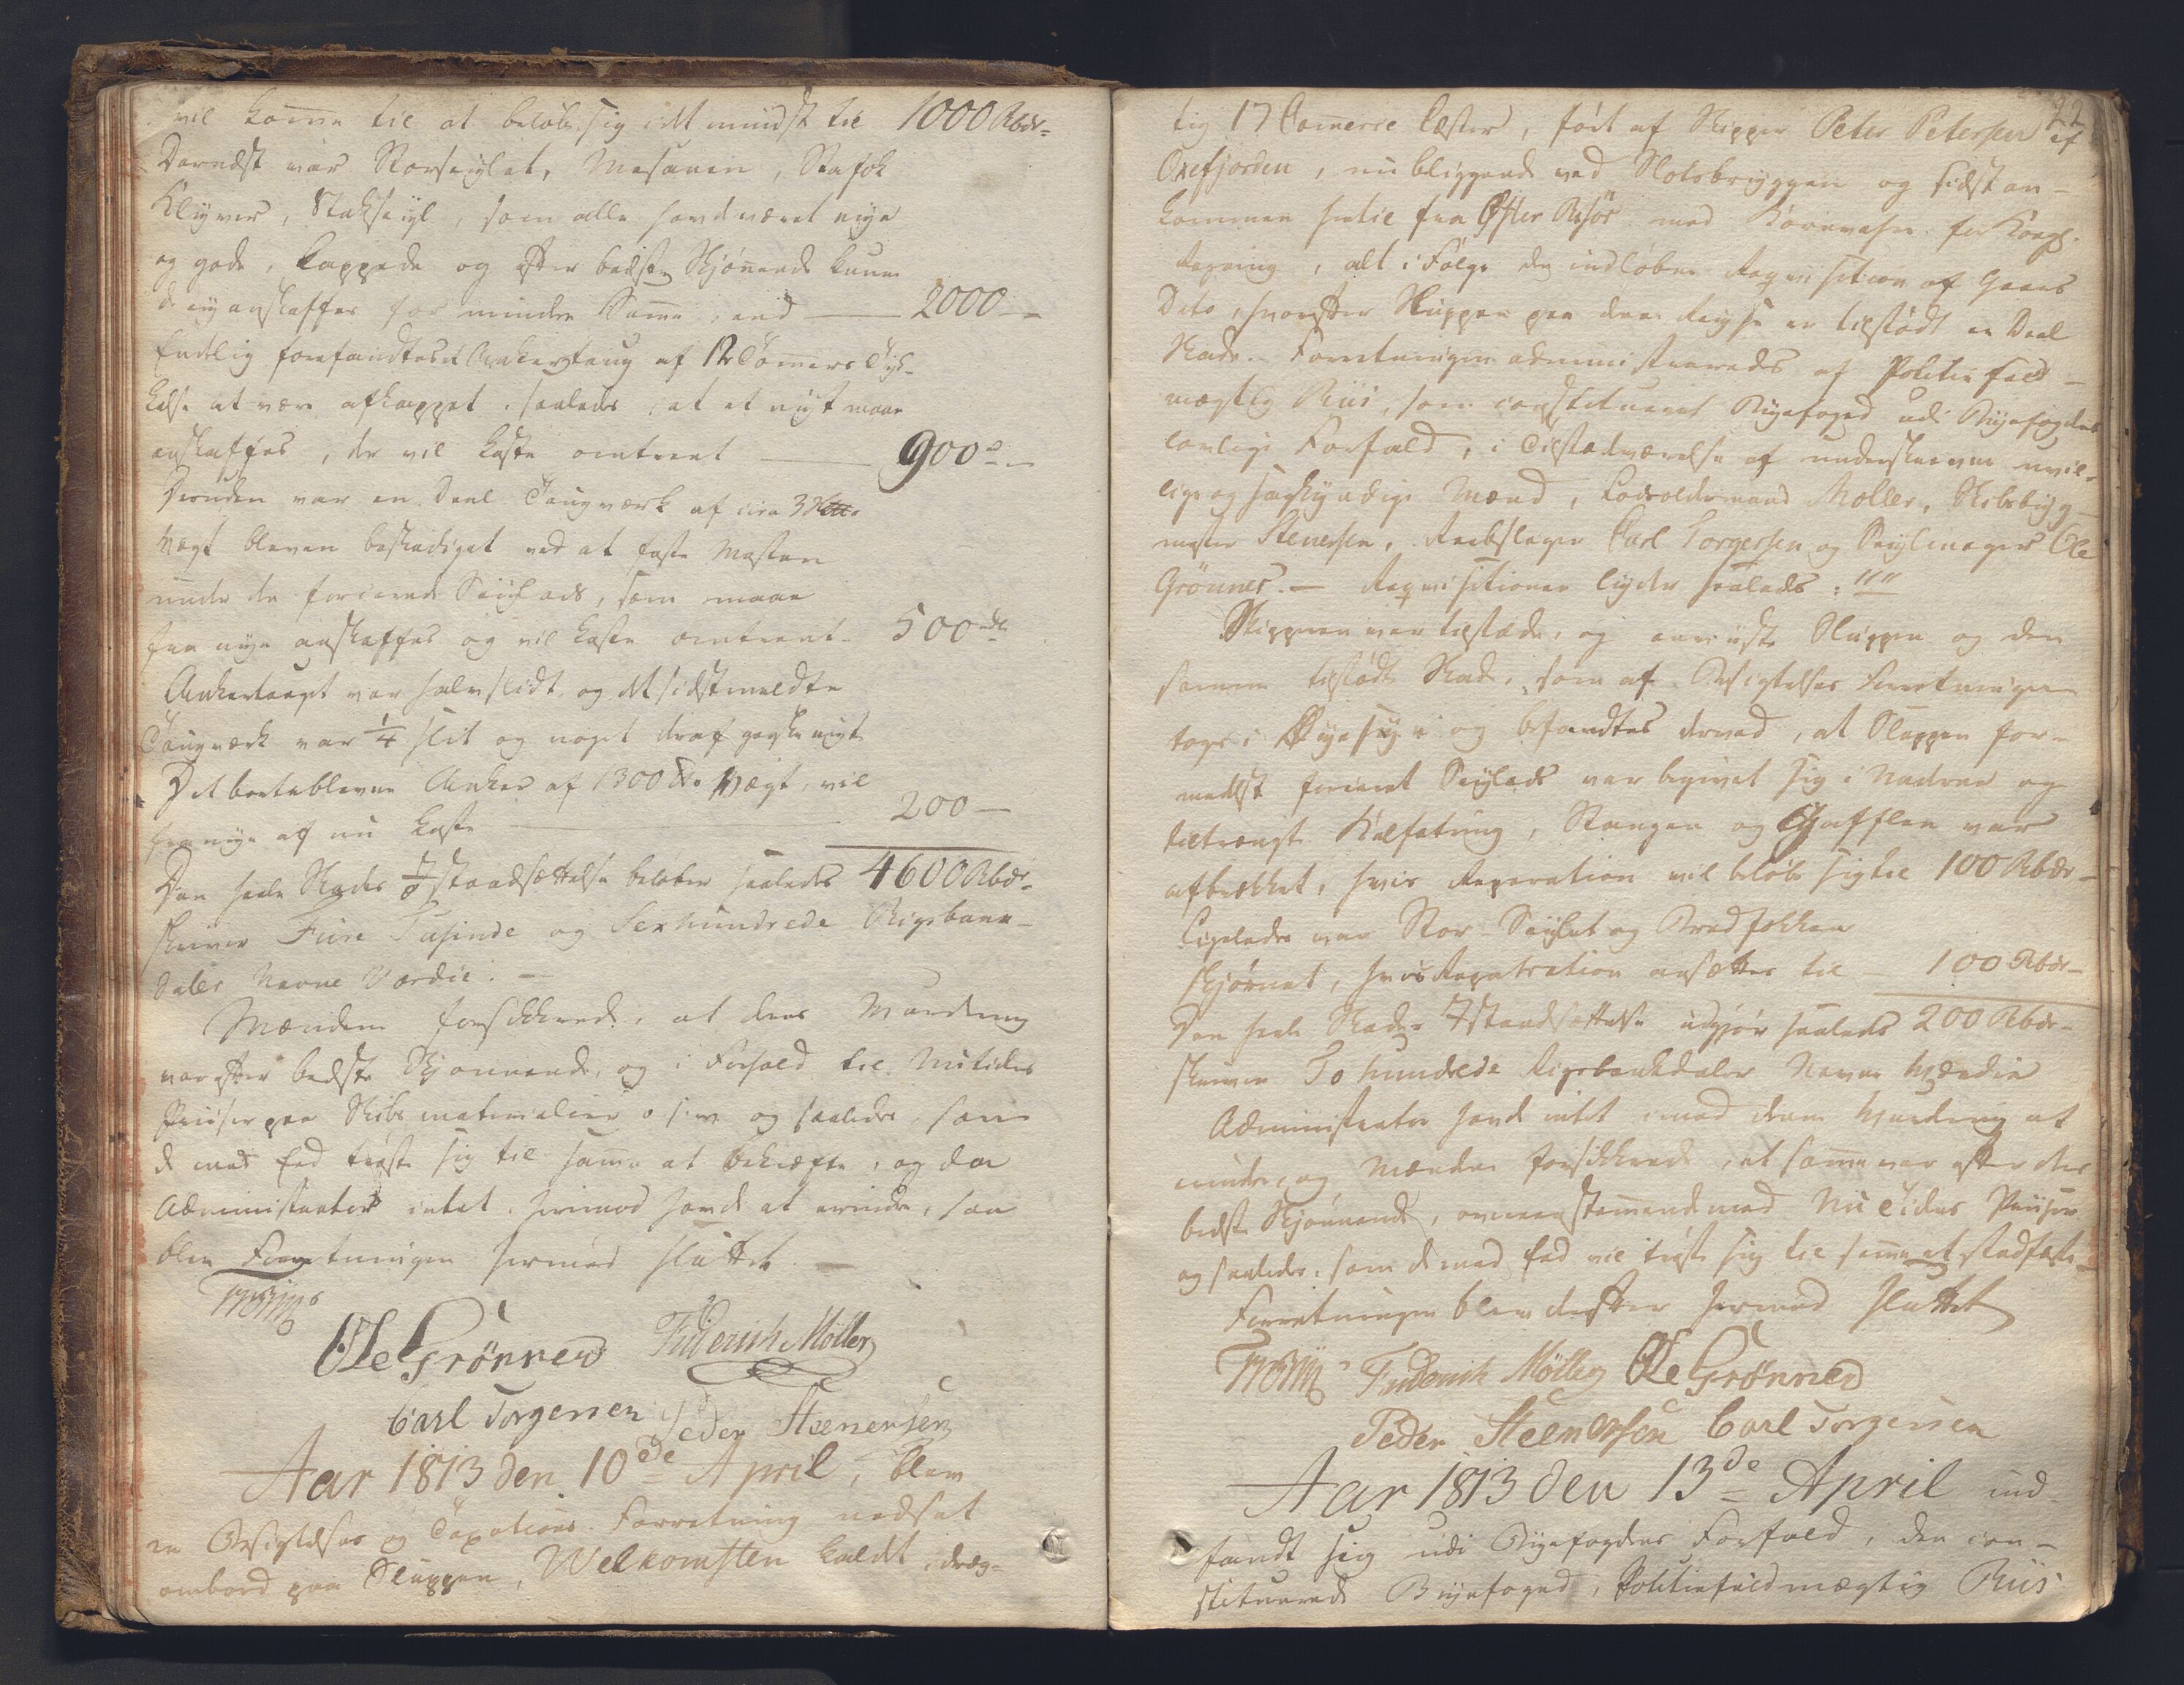 vil komme til at beløbe sig idt mindst til 1000 Rbdr
Dernæst var Storseylet, Mesanen, Stafok
Klyver, Stakseyl, som alle havde været nye
og gode, kappede og efter bedste Skjønnende kunne
de ei anskaffes for mindre Summa end — 2000 —
Endelig forefandtes et Ankertoug af 12 Tommers Tyk-
kelse at være afkappet, saaledes, at et nyt maae
anskaffes, der vil koste omtrent — 900 —
Desuden var en Deel Tougværk af circa 3
Vægt bleven beskadiget ved at kaste Masten
under de forcerede Seiglads, som maae
fra nye anskaffes og vil koste omtrent 500
Ankertouget var halvslidt og det sidstmeldte
Tougværk var 1/4 slit og noget deraf ganske nyt
Det borteblevne Anker af 1300 Vægt, vil
fra nye af nu koste — 200 —
Den heele Skades Istandsættelse beløber saaledes 4600 Rbdr
skriver Fiire Tusinde og Sexhundrede Rigsbank-
daler Navne Værdie. —
Mændene forsikkrede, at deres Vurdering
var efter bedste Skjønnende, og i Forhold til Nutidens
Priiser paa Skibs materialier o. s. v. og saaledes, som
de med Eed trøste sig til samme at bekræfte, og da
Administrator intet herimod havde at erindre, saa
blev Forretningen hermed sluttet. —
Ole Grønner Friderich Møller
Carl Torgersen Peder Steenersen
Aar 1813 den 10de April, blev
en Besigtelses og Taxations Forretning nedsat
ombord paa Sluppen, Welkomsten kaldt, dræg-
22
tig 17 Comerce Læster, ført af Skipper Peter Petersen af
Oxefjorden, nu bliggende ved Slotsbryggen og sidst an-
kommen hertil fra Øster Risør med Kornvahre for Kongl.
Regning, alt i Følge den indløbne Reqvisition af Gaars
Dato, hvorefter Sluppen paa denne Reyse er tilstødt en Deel
Skade. Forretningen administreredes af Politiefuld-
mægtig Riis, som constitueret Byefoged udi Byefogdens
lovlige Forfald, i Tilstædeværelse af underskrevne uvil-
lige og sagkyndige Mænd, Lodsoldermand Møller, Skibsbygg-
mester Stenersen, Reebslager Carl Torgersen og Seylmager Ole
Grønner. — Reqvisitionen lyder saaledes: """
Skipperen var tilstæde, og anviiste Sluppen og den
samme tilstødte Skade, som af Besigtelses Forretningen
toges i Øyesyn og befandtes derved, at Sluppen for-
medelst forceret Seylads var begivet sig i Nadene og
tiltrængte Kalfatring, Stangen og Gafflen var
afbrækket, hvis Reparation vil beløbe sig til 100 Rbdr —
Ligeledes var Stor-Seylet og Bredfokken
skjørnet, hvis Reparation ansættes til 100 Rbdr —
Den heele Skades Istandsættelse udgjør saaledes 200 Rbdr —
skriver To hundrede Rigsbankdaler Navne Værdie
Administrator havde intet imod denne Vurdering at
erindre, og Mændene forsikkrede, at samme var efter deres
bedste Skjønnende, overeensstemmende med Nutidens Priiser
og saaledes, som de med Eed vil trøste sig til samme at stadfæste —
Forretningen blev derefter hermed sluttet
Friderich Møller Ole Grønner
Peder Steenersen Carl Torgersen
Aar 1813 den 13de April ind-
fandt sig udi Byefogdens Forfald, den con-
stituerede Byefoged, Politiefuldmægtig Riis